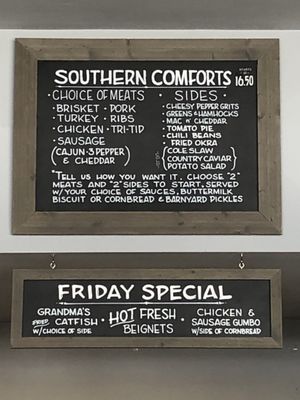 STARTS @
SOUTHERN COMFORTS 16.50
· CHOICE OF MEATS · SIDES ·
· BRISKET · PORK
· TURKEY · RIBS
· CHICKEN · TRI-TID
· SAUSAGE
(CAJUN · 3 PEPPER & CHEDDAR)
· CHEESY PEPPER GRITS
· GREENS & HAMHOCKS
· MAC N' CHEDDAR
· TOMATO PIE
· CHILI BEANS
FRIED OKRA
COLE SLAW
COUNTRY CAVIAR
POTATO SALAD
"TELL US HOW YOU WANT IT. CHOOSE "2"
MEATS AND "2" SIDES TO START, SERVED
W/YOUR CHOICE OF SAUCES, BUTTERMILK
BISCUIT OR CORNBREAD & BARNYARD PICKLES
FRIDAY SPECIAL
GRANDMA'S
FRIED CATFISH
W/CHOICE OF SIDE
· HOT FRESH ·
BEIGNETS
CHICKEN &
SAUSAGE GUMBO
W/SIDE OF CORNBREAD